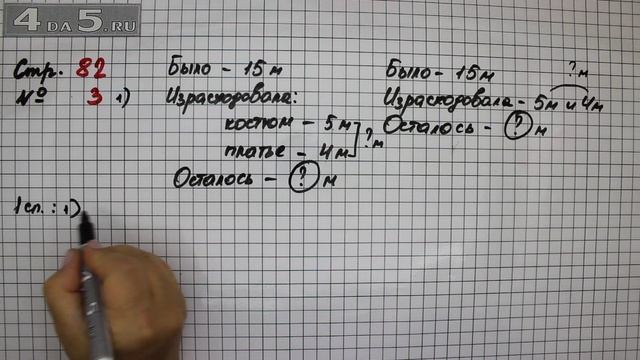 4DA5.RU
Стр. 82
№ 3 1)
Было - 15 м
Израсходовала:
костюм - 5 м
платье - 4 м
? м
Осталось - ? м
? м
Было - 15 м
Израсходовала - 5 м и 4 м
Осталось - ? м
1 сп. : 1)